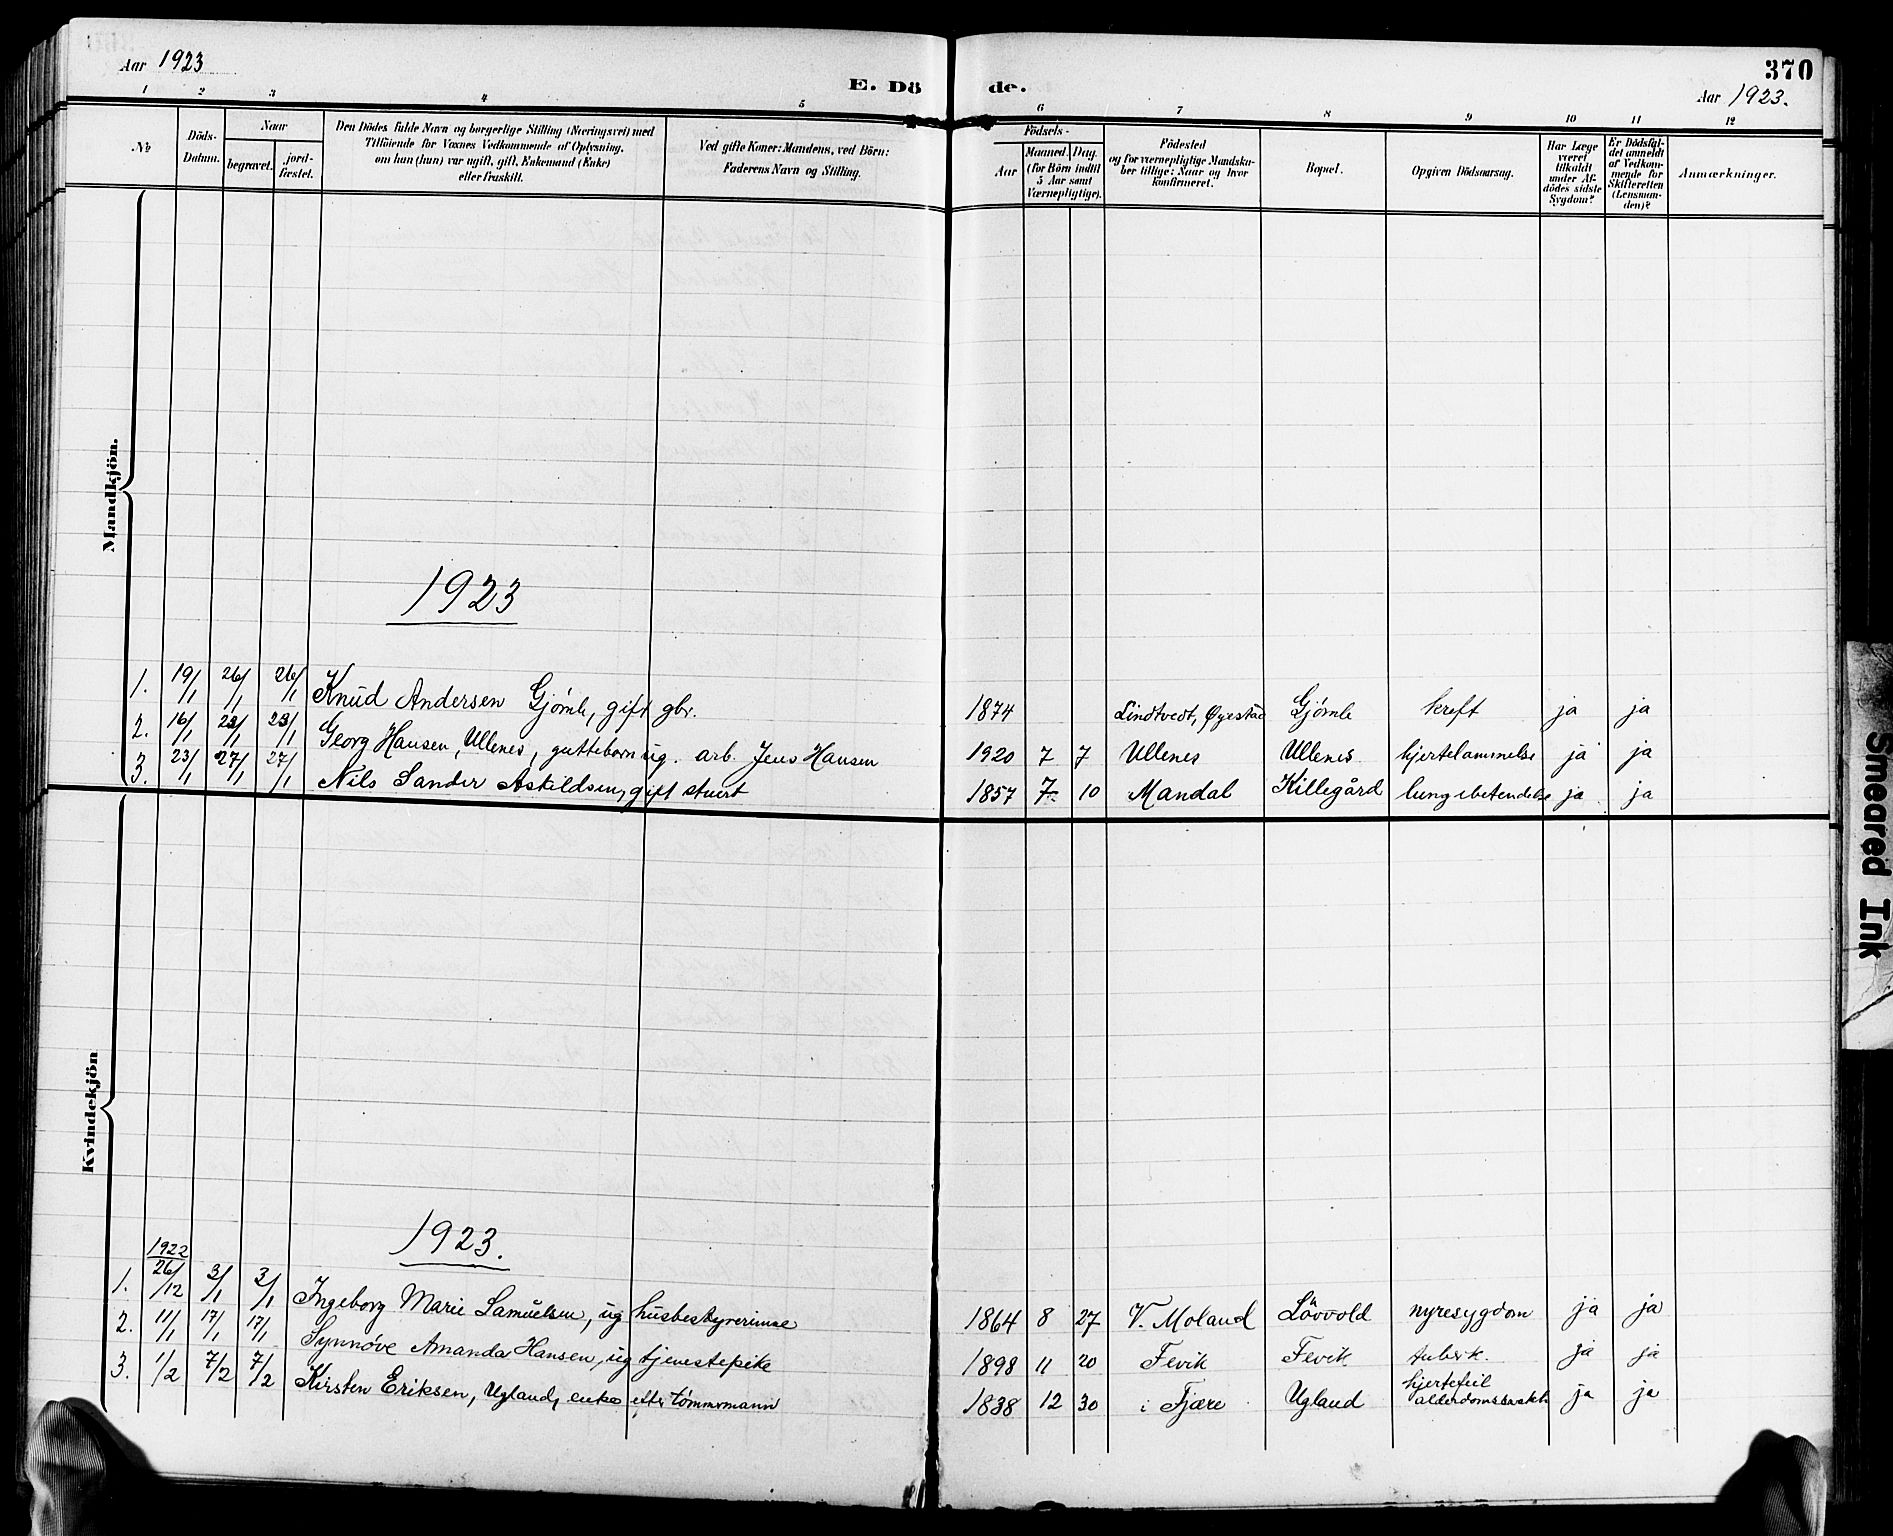 Aar 1923
E. Dö de.
370
Aar 1923.
1 2 3 4 5 6 7 8 9 10 11 12
№
Döds-
Datum.
Naar
begravet.
jord-
fæstet.
Den Dödes fulde Navn og borgerlige Stilling (Næringsvei) med
Tilföiende for Voxnes Vedkommende af Oplysning,
om han (hun) var ugift, gift, Enkemand (Enke)
eller fraskilt.
Ved gifte Koner: Mandens, ved Börn:
Faderens Navn og Stilling.
Födsels-
Aar
Maaned. Dag.
(for Börn indtil
5 Aar samt
Værnepligtige).
Födested
og for værnepligtige Mandska-
ber tillige: Naar og hvor
konfirmeret.
Bopæl.
Opgiven Dödsaarsag.
Har Læge
været
tilkaldt
under Af-
dödes sidste
Sygdom?
Er Dödsfal-
det anmeldt
af Vedkom-
mende for
Skifteretten
(Lensman-
den)?
Anmærkninger.
Mandkjön.
1923
1. 19/1 26/1 26/1 Knud Andersen Gjömle, gift gbr. 1874 Lindtvedt, Øyestad Gjömle kreft ja ja
2. 16/1 23/1 23/1 Georg Hansen, Ullenes, guttebarn ug. arb. Jens Hansen 1920 7 7 Ullenes Ullenes hjertelammelse ja ja
3. 23/1 27/1 27/1 Nils Sander Askildsen, gift stuert 1857 7 10 Mandal Killegård lungebetendelse ja ja
Kvindekjön
1923.
1922
1. 26/12 3/1 3/1 Ingeborg Marie Samuelsen, ug husbestyrerinne 1864 8 27 V. Moland Lövvold nyresygdom ja ja
2. 11/1 17/1 17/1 Synnöve Amanda Hansen, ug tjenestepike 1898 11 20 Fevik Fevik tuberk. ja ja
3. 1/2 7/2 7/2 Kirsten Eriksen, Ugland, enke efter tömmermann 1838 12 30 i Fjære Ugland hjertefeil
alderdomssvakh ja ja
Smeared Ink